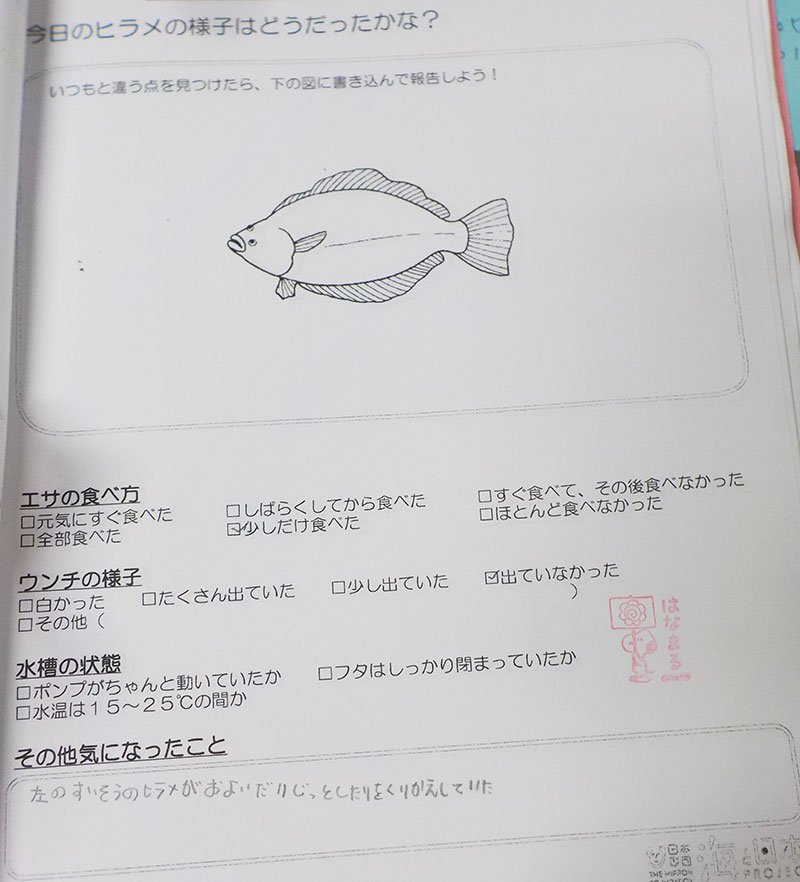 今日のヒラメの様子はどうだったかな？
いつもと違う点を見つけたら、下の図に書き込んで報告しよう！
エサの食べ方
□元気にすぐ食べた □しばらくしてから食べた □すぐ食べて、その後食べなかった
□全部食べた ☑少しだけ食べた □ほとんど食べなかった
ウンチの様子
□白かった □たくさん出ていた □少し出ていた ☑出ていなかった
□その他（ ）
はなまる
水槽の状態
□ポンプがちゃんと動いていたか □フタはしっかり閉まっていたか
□水温は１５～２５℃の間か
その他気になったこと
左のすいそうのヒラメがおよいだりじっとしたりをくりかえしていた
THE NIPPON